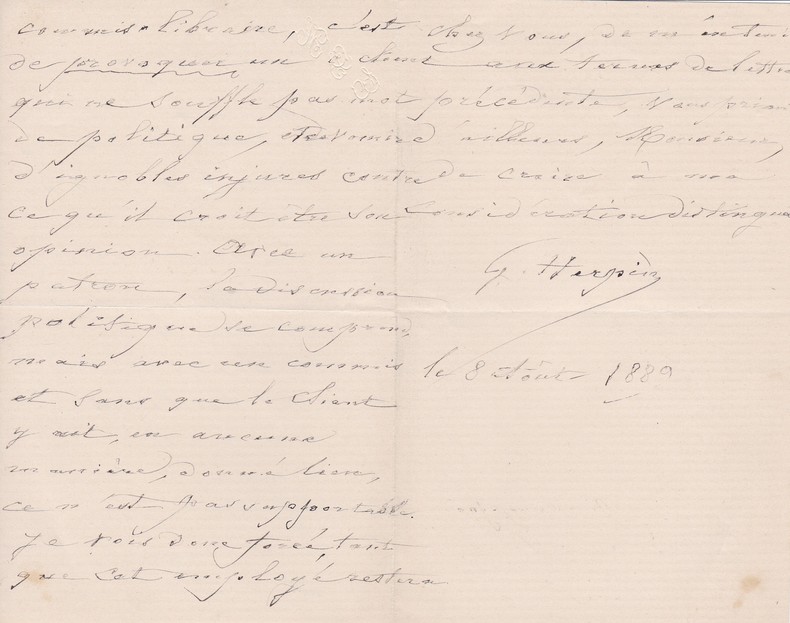 commis-libraire,
de provoquer un client
qui ne souffle pas mot
de politique, et de vomir
d'ignobles injures contre
ce qu'il croit être son
opinion. Avec un
patron, la discussion
politique se comprend,
mais avec un commis
et sans que le client
y ait, en aucune
manière, donné lieu,
ce n'est pas supportable.
Je vois donc forcé, tant
que cet employé restera
chez vous, de m'en tenir
aux termes de lettre
précédente, Vous priant
d'ailleurs, Monsieur,
de croire à ma
considération distinguée
G. Herpin
le 8 Août 1889